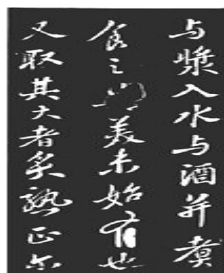 与漿入水与酒并煮
食之甚美未始有也
又取其大者炙熟正尔